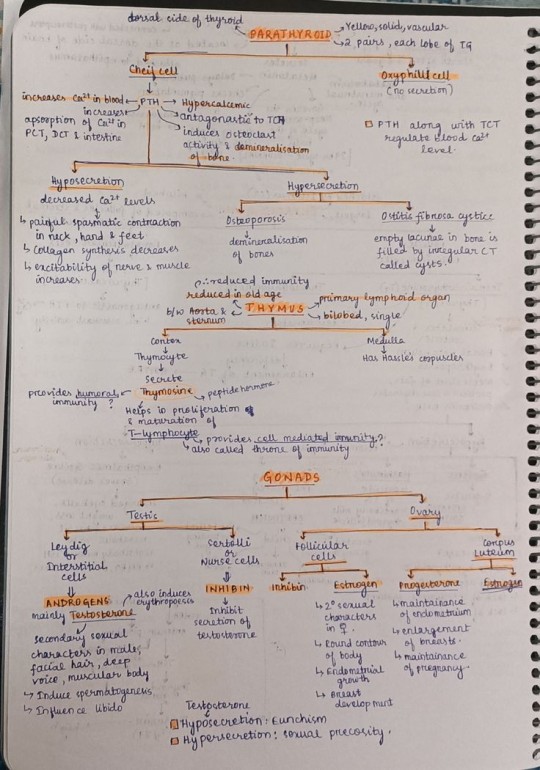 dorsal side of thyroid
PARATHYROID
Yellow, solid, vascular
2 pairs, each lobe of TG
Cheif cell
Oxyphill cell
(no secretion)
increases Ca2+ in blood
PTH
Hypercalcemic
increases
apsorption of Ca2+ in
PCT, DCT & intestine
antagonastic to TCT
induces osteoclast
activity & demineralisation
of bone.
PTH along with TCT
regulate blood Ca2+
level.
Hyposecretion
Hypersecretion
decreased Ca2+ levels
painful spasmatic contraction
in neck, hand & feet
Collagen synthesis decreases
excitability of nerve & muscle
increases
Osteoporosis
demineralisation
of bones
Ostitis fibrosa cystice
empty lacunae in bone is
filled by irregular CT
called cysts.
∴ reduced immunity
reduced in old age
b/w Aorta &
sternum
THYMUS
primary lymphoid organ
bilobed, single
Cortex
Medulla
Thymocyte
Has Hassle's corpuscles
Secrete
Thymosine
peptide hormone
provides humoral
immunity ?
Helps in proliferation
& maturation of
T-lymphocyte
provides cell mediated imunity ?
also called throne of immunity
GONADS
Testis
Ovary
Leydig
or
Interstitial
cells
Sertolli
or
Nurse cells
Follicular
cells
Corpus
Luteum
ANDROGENS
mainly Testosterone
also induces
erythropoesis
INHIBIN
Inhibit
secretion of
testosterone
Inhibin
Estrogen
Progesterone
Estrogen
secondary sexual
characters in male,
facial hair, deep
voice, muscular body
Induce spermatogenesis
Influence libido
2° sexual
characters
in ♀.
Round contour
of body
Endometrial
growth
Breast
development
maintainance
of endometrium
enlargement
of breasts.
maintainance
of pregnancy.
Testosterone
Hyposecretion: Eunchism
Hypersecretion: sexual precosity.